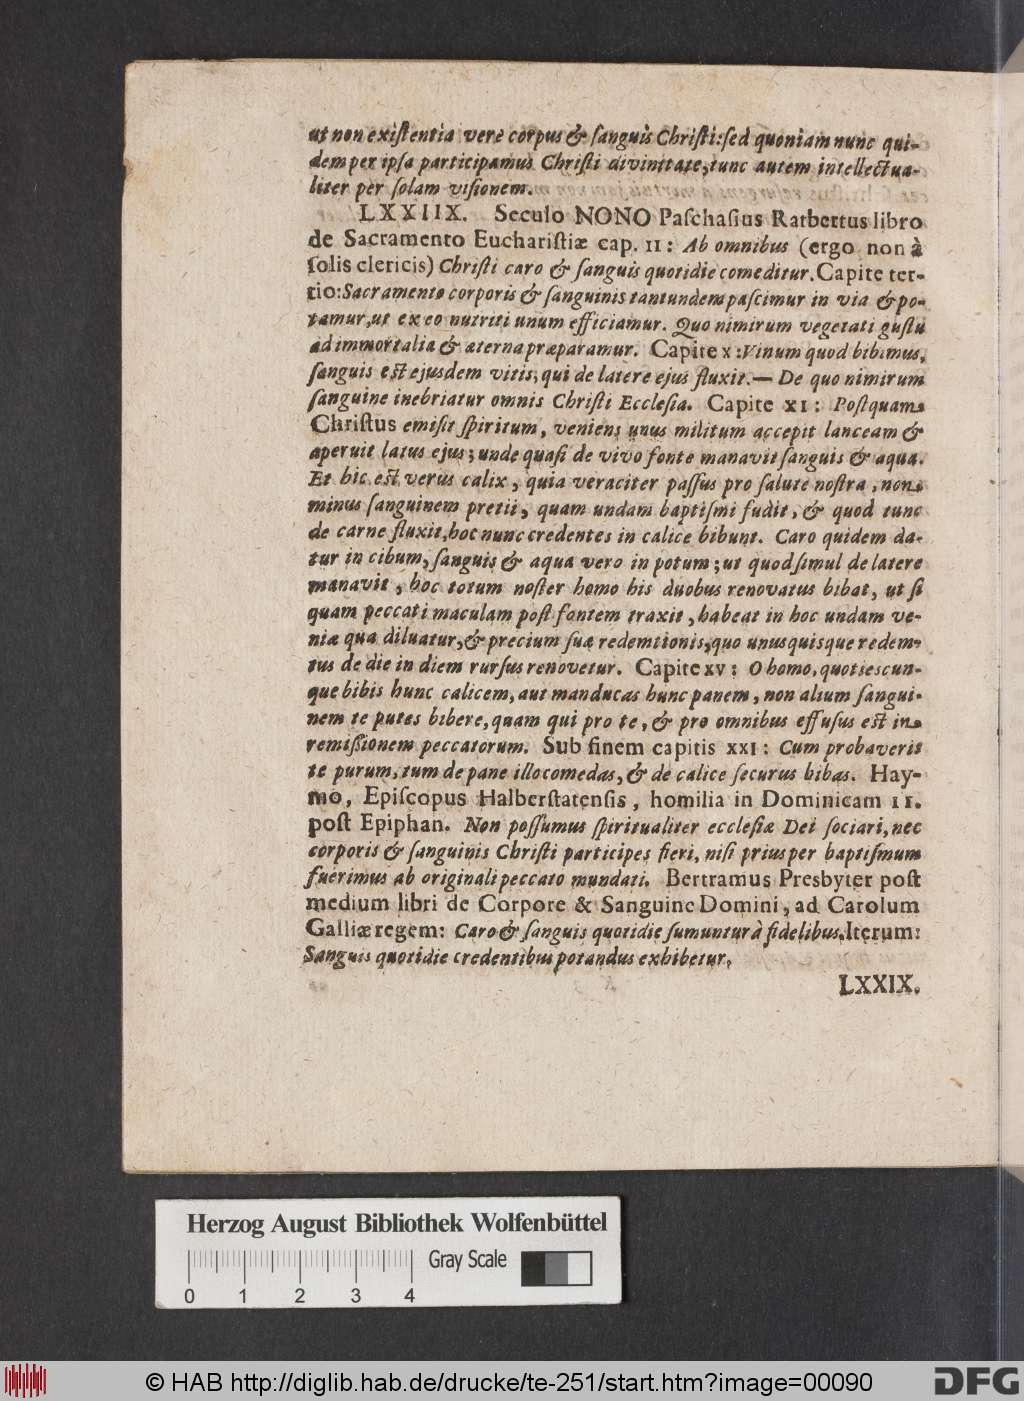 ut non existentia vere corpus & sanguis Christi: sed quoniam nunc qui-
dem per ipsa participamus Christi divinitate, tunc autem intellectua-
liter per solam visionem.
LXXIIX. Seculo NONO Paschasius Ratbertus libro
de Sacramento Eucharistiæ cap. II: Ab omnibus (ergo non à
solis clericis) Christi caro & sanguis quotidie comeditur. Capite ter-
tio: Sacramento corporis & sanguinis tantundem pascimur in via & po-
tamur, ut ex eo nutriti unum efficiamur. Quo nimirum vegetati gustu
ad immortalia & æterna præparamur. Capite x: Vinum quod bibimus,
sanguis est ejusdem vitis, qui de latere ejus fluxit.— De quo nimirum
sanguine inebriatur omnis Christi Ecclesia. Capite XI: Postquam
Christus emisit spiritum, veniens unus militum accepit lanceam &
aperuit latus ejus; unde quasi de vivo fonte manavit sanguis & aqua.
Et hic est verus calix, quia veraciter passus pro salute nostra, non
minus sanguinem pretii, quam undam baptismi fudit, & quod tunc
de carne fluxit, hoc nunc credentes in calice bibunt. Caro quidem da-
tur in cibum, sanguis & aqua vero in potum; ut quod simul de latere
manavit, hoc totum noster homo his duobus renovatus bibat, ut si
quam peccati maculam post fontem traxit, habeat in hoc undam ve-
niæ qua diluatur, & precium suæ redemtionis, quo unusquisque redem-
tus de die in diem rursus renovetur. Capite xv: O homo, quotiescun-
que bibis hunc calicem, aut manducas hunc panem, non alium sangui-
nem te putes bibere, quam qui pro te, & pro omnibus effusus est in
remissionem peccatorum. Sub finem capitis XXI: Cum probaveris
te purum, tum de pane illo comedas, & de calice securus bibas. Hay-
mo, Episcopus Halberstatensis, homilia in Dominicam II.
post Epiphan. Non possumus spiritualiter ecclesiæ Dei sociari, nec
corporis & sanguinis Christi participes fieri, nisi prius per baptismum
fuerimus ab originali peccato mundati. Bertramus Presbyter post
medium libri de Corpore & Sanguine Domini, ad Carolum
Galliæ regem: Caro & sanguis quotidie sumuntur à fidelibus. Iterum:
Sanguis quotidie credentibus potandus exhibetur.
LXXIX.
Herzog August Bibliothek Wolfenbüttel
Gray Scale
0 1 2 3 4
© HAB http://diglib.hab.de/drucke/te-251/start.htm?image=00090
DFG